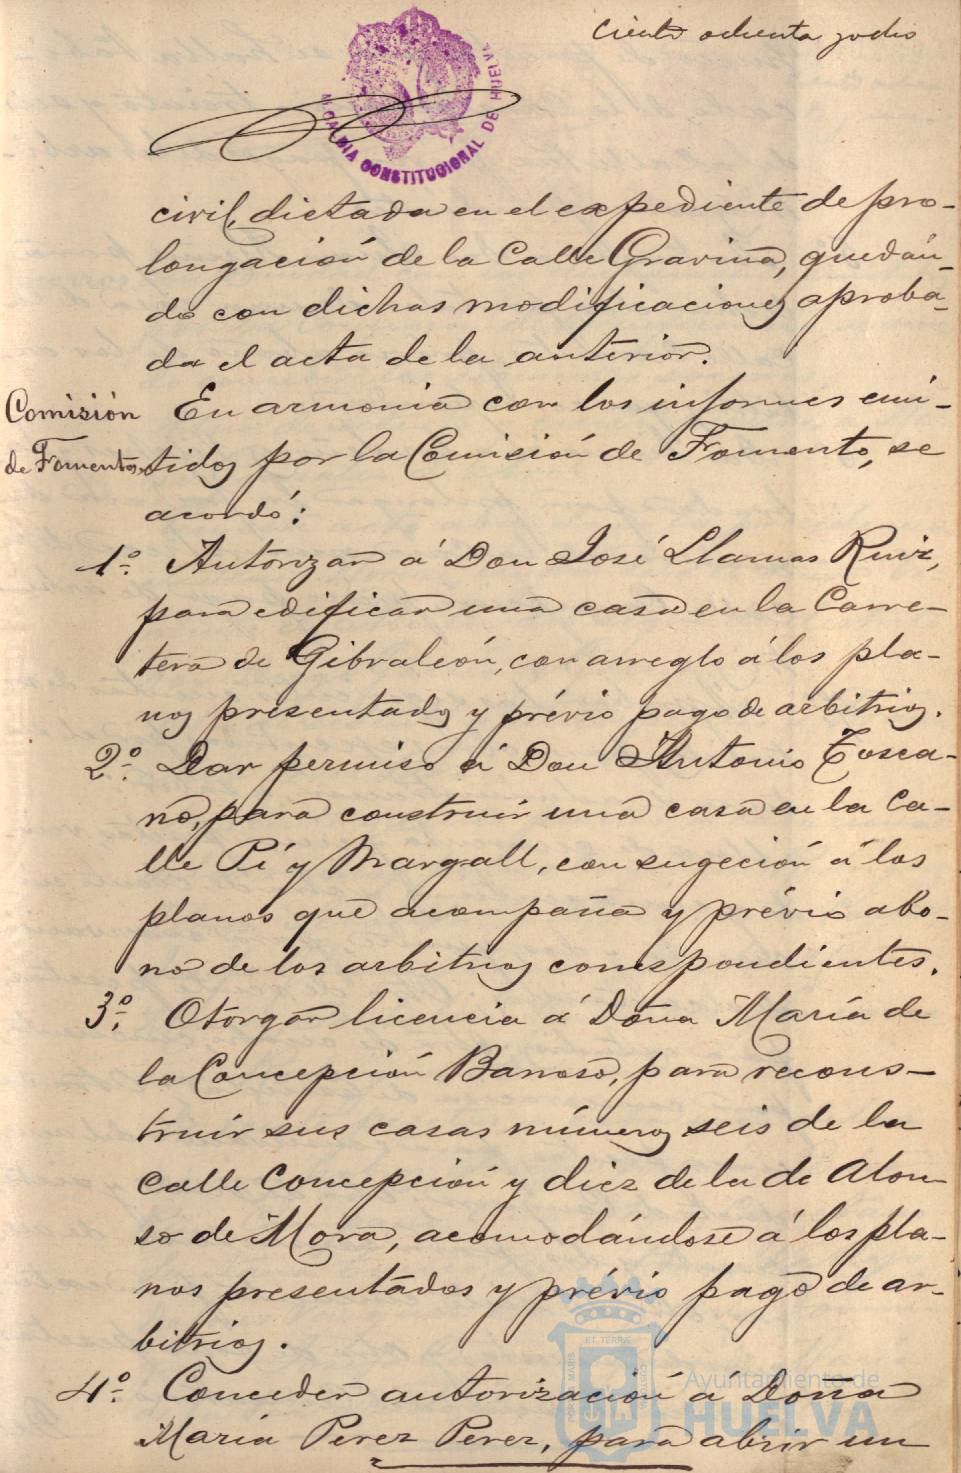 Ciento ochenta y ocho
ALCALDIA CONSTITUCIONAL DE HUELVA
civil, dictada en el expediente de pro-
longación de la Calle Gravina, quedán-
do con dichas modificaciones aproba-
da el acta de la anterior.
Comisión
de Fomento.
En armonia con los informes emi-
tidos por la Comisión de Fomento, se
acordó:
1º. Autorizar á Don José Llamas Ruiz,
para edificar una casa en la Carre-
tera de Gibraleón, con arreglo á los pla-
nos presentados y prévio pago de arbitrios.
2º. Dar permiso á Don Antonio Tosca-
no, para construir una casa en la Ca-
lle Pí y Margall, con sugeción á los
planos que acompaña y prévio abo-
no de los arbitrios correspondientes.
3º. Otorgar licencia á Doña María de
la Concepción Barroso, para recons-
truir sus casas números seis de la
Calle Concepción y diez de la de Alon-
so de Mora, acomodándose á los pla-
nos presentados y prévio pago de ar-
bitrios.
4º. Conceder autorización á Doña
María Perez Perez, para abrir un
Ayuntamiento de
HUELVA